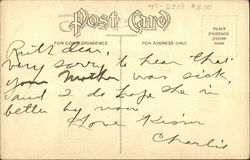 47-2535 $3.00
Post Card
FOR CORRESPONDENCE
FOR ADDRESS ONLY
PLACE
POSTAGE
STAMP
HERE
Ruth dear,
very sorry to hear that
your Mother was sick,
and I do hope she is
better by now
Love
Charlie